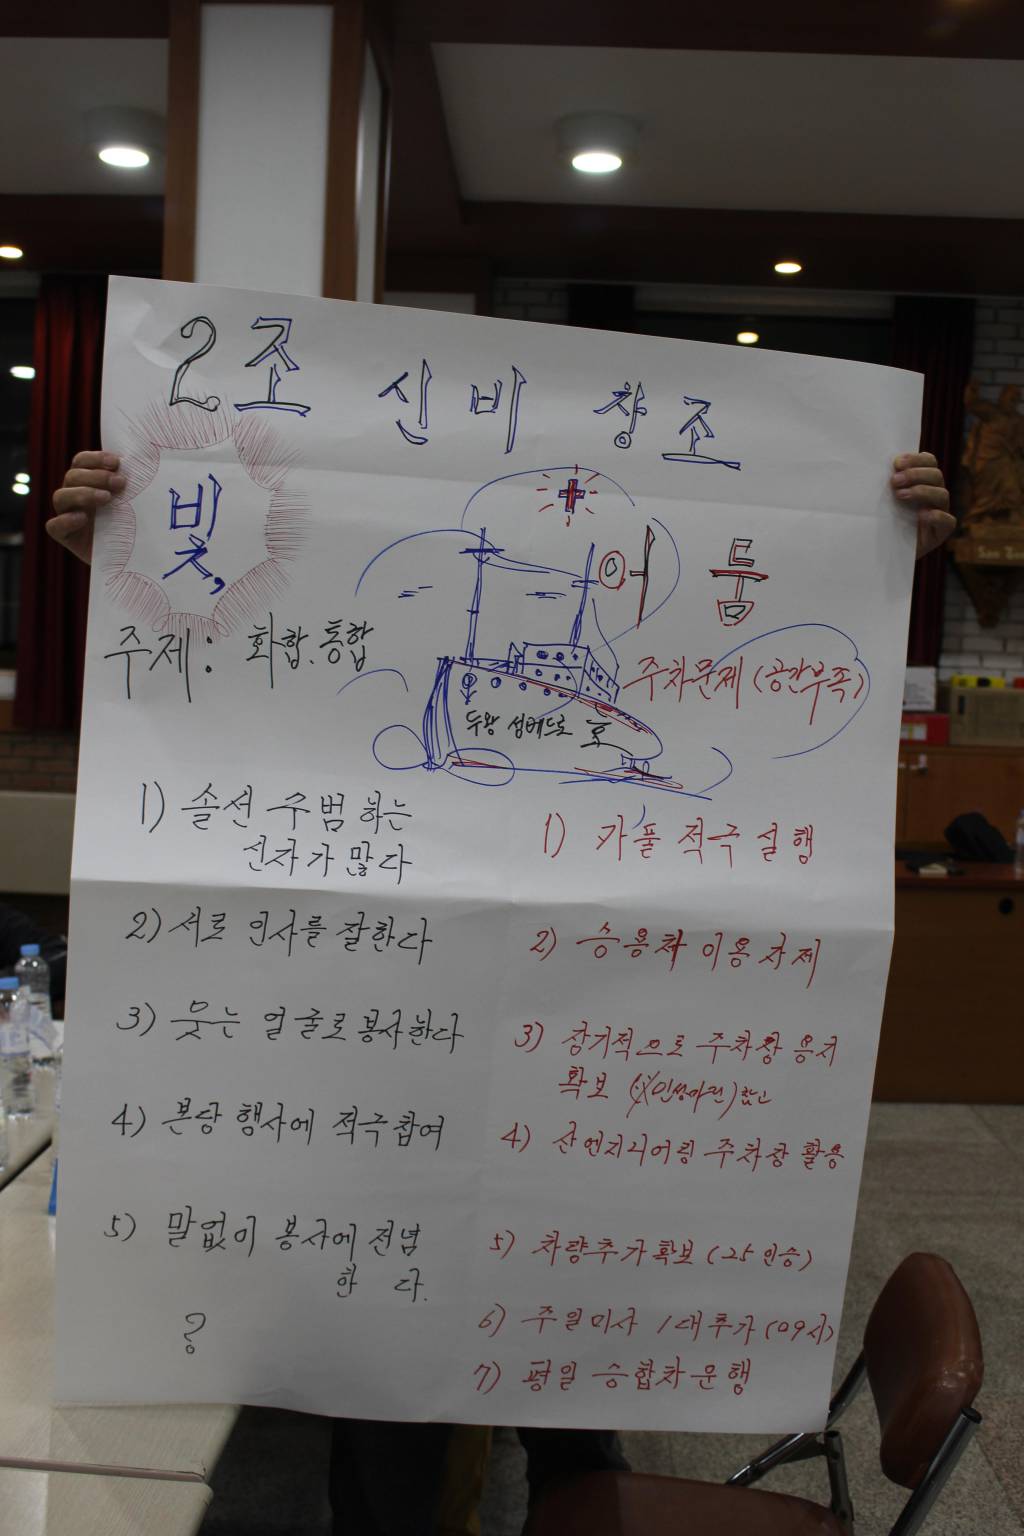 2조 신비 창조
빛,
어 둠
주제: 화합.통합
주차문제 (공간부족)
두왕 성베드로 호
1) 솔선 수범 하는
신자가 많다
2) 서로 인사를 잘한다
3) 웃는 얼굴로 봉사한다
4) 본당 행사에 적극참여
5) 말없이 봉사에 전념
한 다.
?
1) 카풀 적극 실행
2) 승용차 이용 자제
3) 장기적으로 주차장 용지
확보
4) 산 엔지니어링 주차장 활용
5) 차량추가확보 (25 인승)
6) 주일미사 1대추가 (09시)
7) 평일 승합차운행